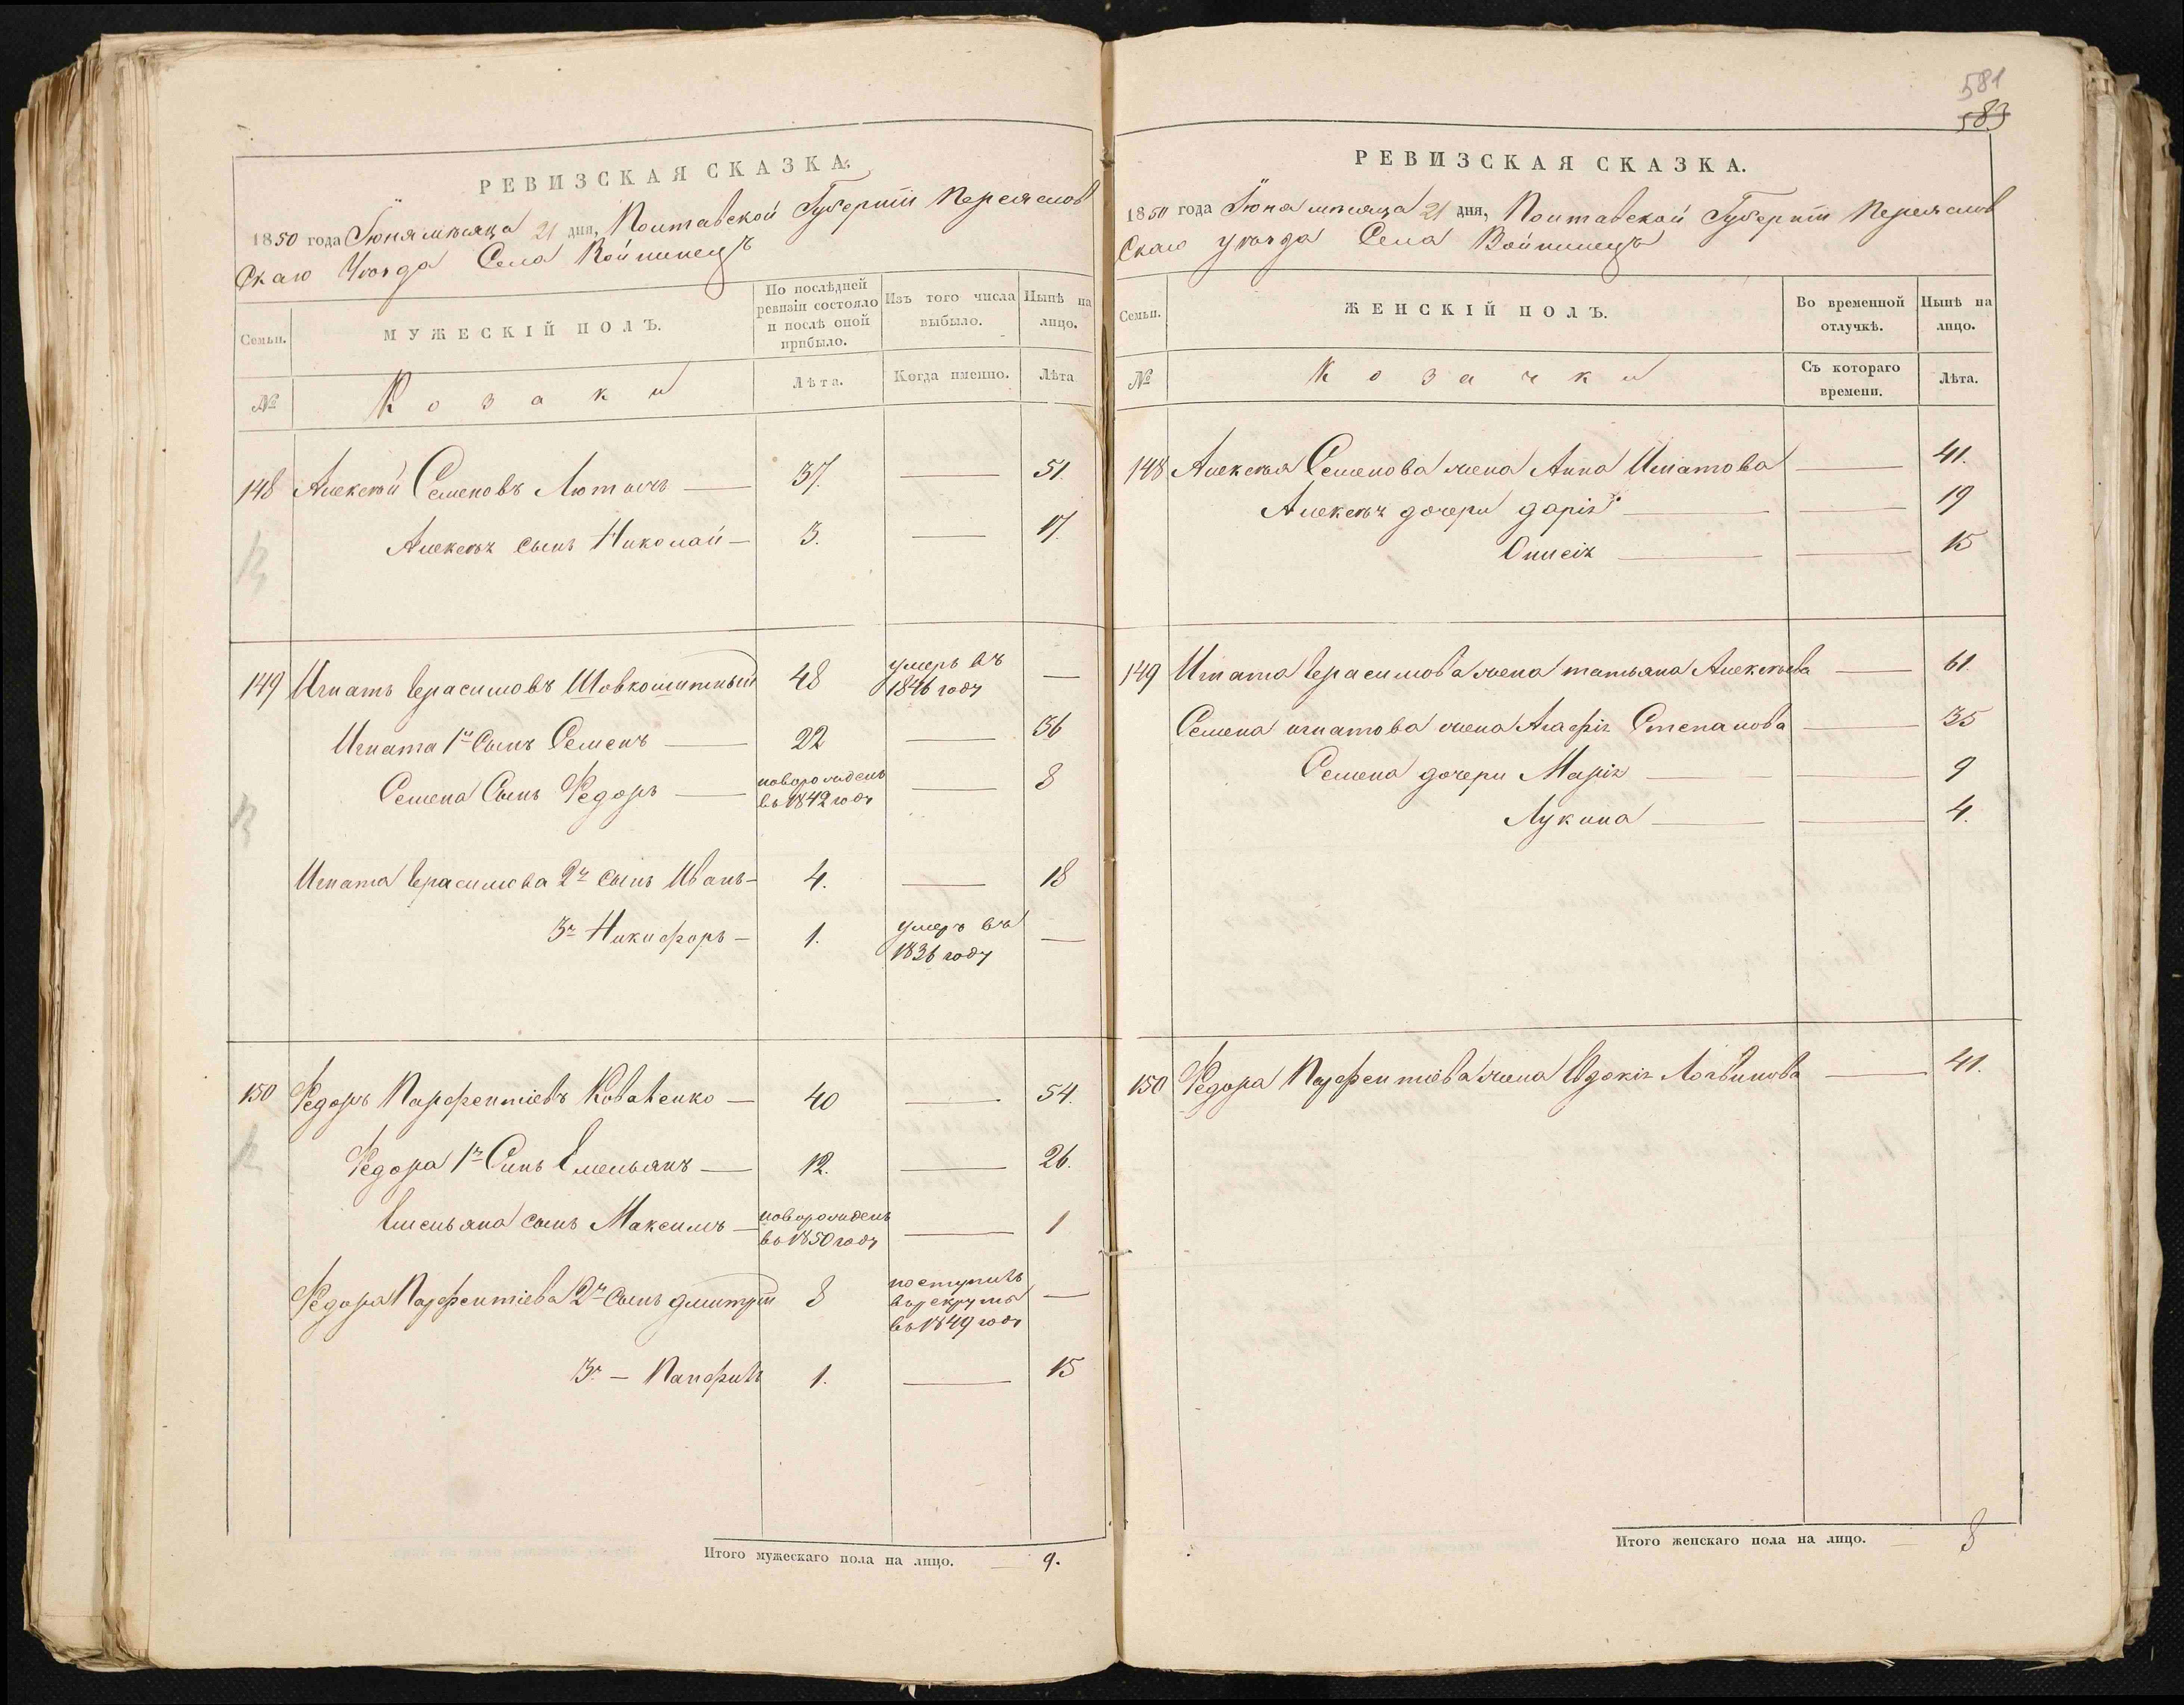 РЕВИЗСКАЯ СКАЗКА.
1850 года Іюня мѣсяца 21 дня, Полтавской Губерніи Переяслов
скаго Уѣзда Села Войтинецъ
Семьи.
МУЖЕСКІЙ ПОЛЪ.
По послѣдней
ревизіи состояло
и послѣ оной
прибыло.
Изъ того числа
выбыло.
Нынѣ на
лицо.
№
Козаки
Лѣта.
Когда именно.
Лѣта
148 Алексѣй Семеновъ Лютычъ 37. — 51.
Алексѣя сынъ Николай — 3. — 17.
149 Игнатъ Герасимовъ Шовкошитный 48 умеръ въ 1846 году —
Игната 1й Сынъ Семенъ — 22 — 36
Семена Сынъ Федоръ — новорожденъ въ 1842 году — 8
Игната Герасимова 2й сынъ Иванъ — 4. — 18
3й Никифоръ — 1. умеръ въ 1836 году —
150 Федоръ Парфентіевъ Коваленко — 40 — 54.
Федора 1й Синъ Емельянъ — 12. — 26.
Емельяна сынъ Максимъ — новорожденъ въ 1850 году — 1
Федора Парфентіева 2й сынъ дмитрій 8 поступилъ въ рекруты въ 1849 году —
3й — Панфилъ 1. — 15
Итого мужескаго пола на лицо. — 9.
581
583
РЕВИЗСКАЯ СКАЗКА.
1850 года Іюня мѣсяца 21 дня, Полтавской Губерніи Переяслов
скаго уѣзда Села Войтинецъ
Семьи.
ЖЕНСКІЙ ПОЛЪ.
Во временной
отлучкѣ.
Нынѣ на
лицо.
№
Козачки
Съ котораго
времени.
Лѣта.
148 Алексѣя Семенова жена Анна Игнатова — 41.
Алексѣя дочери дарія — — 19
Онисія — — 15
149 Игната Герасимова жена татьяна Алексѣева — 61.
Семена игнатова жена Агафія Степанова — 35
Семена дочери Марія — — 9
Лукина — — 4.
150 Федора Парфентіева жена Евдокія Логвинова — 41.
Итого женскаго пола на лицо. — 8